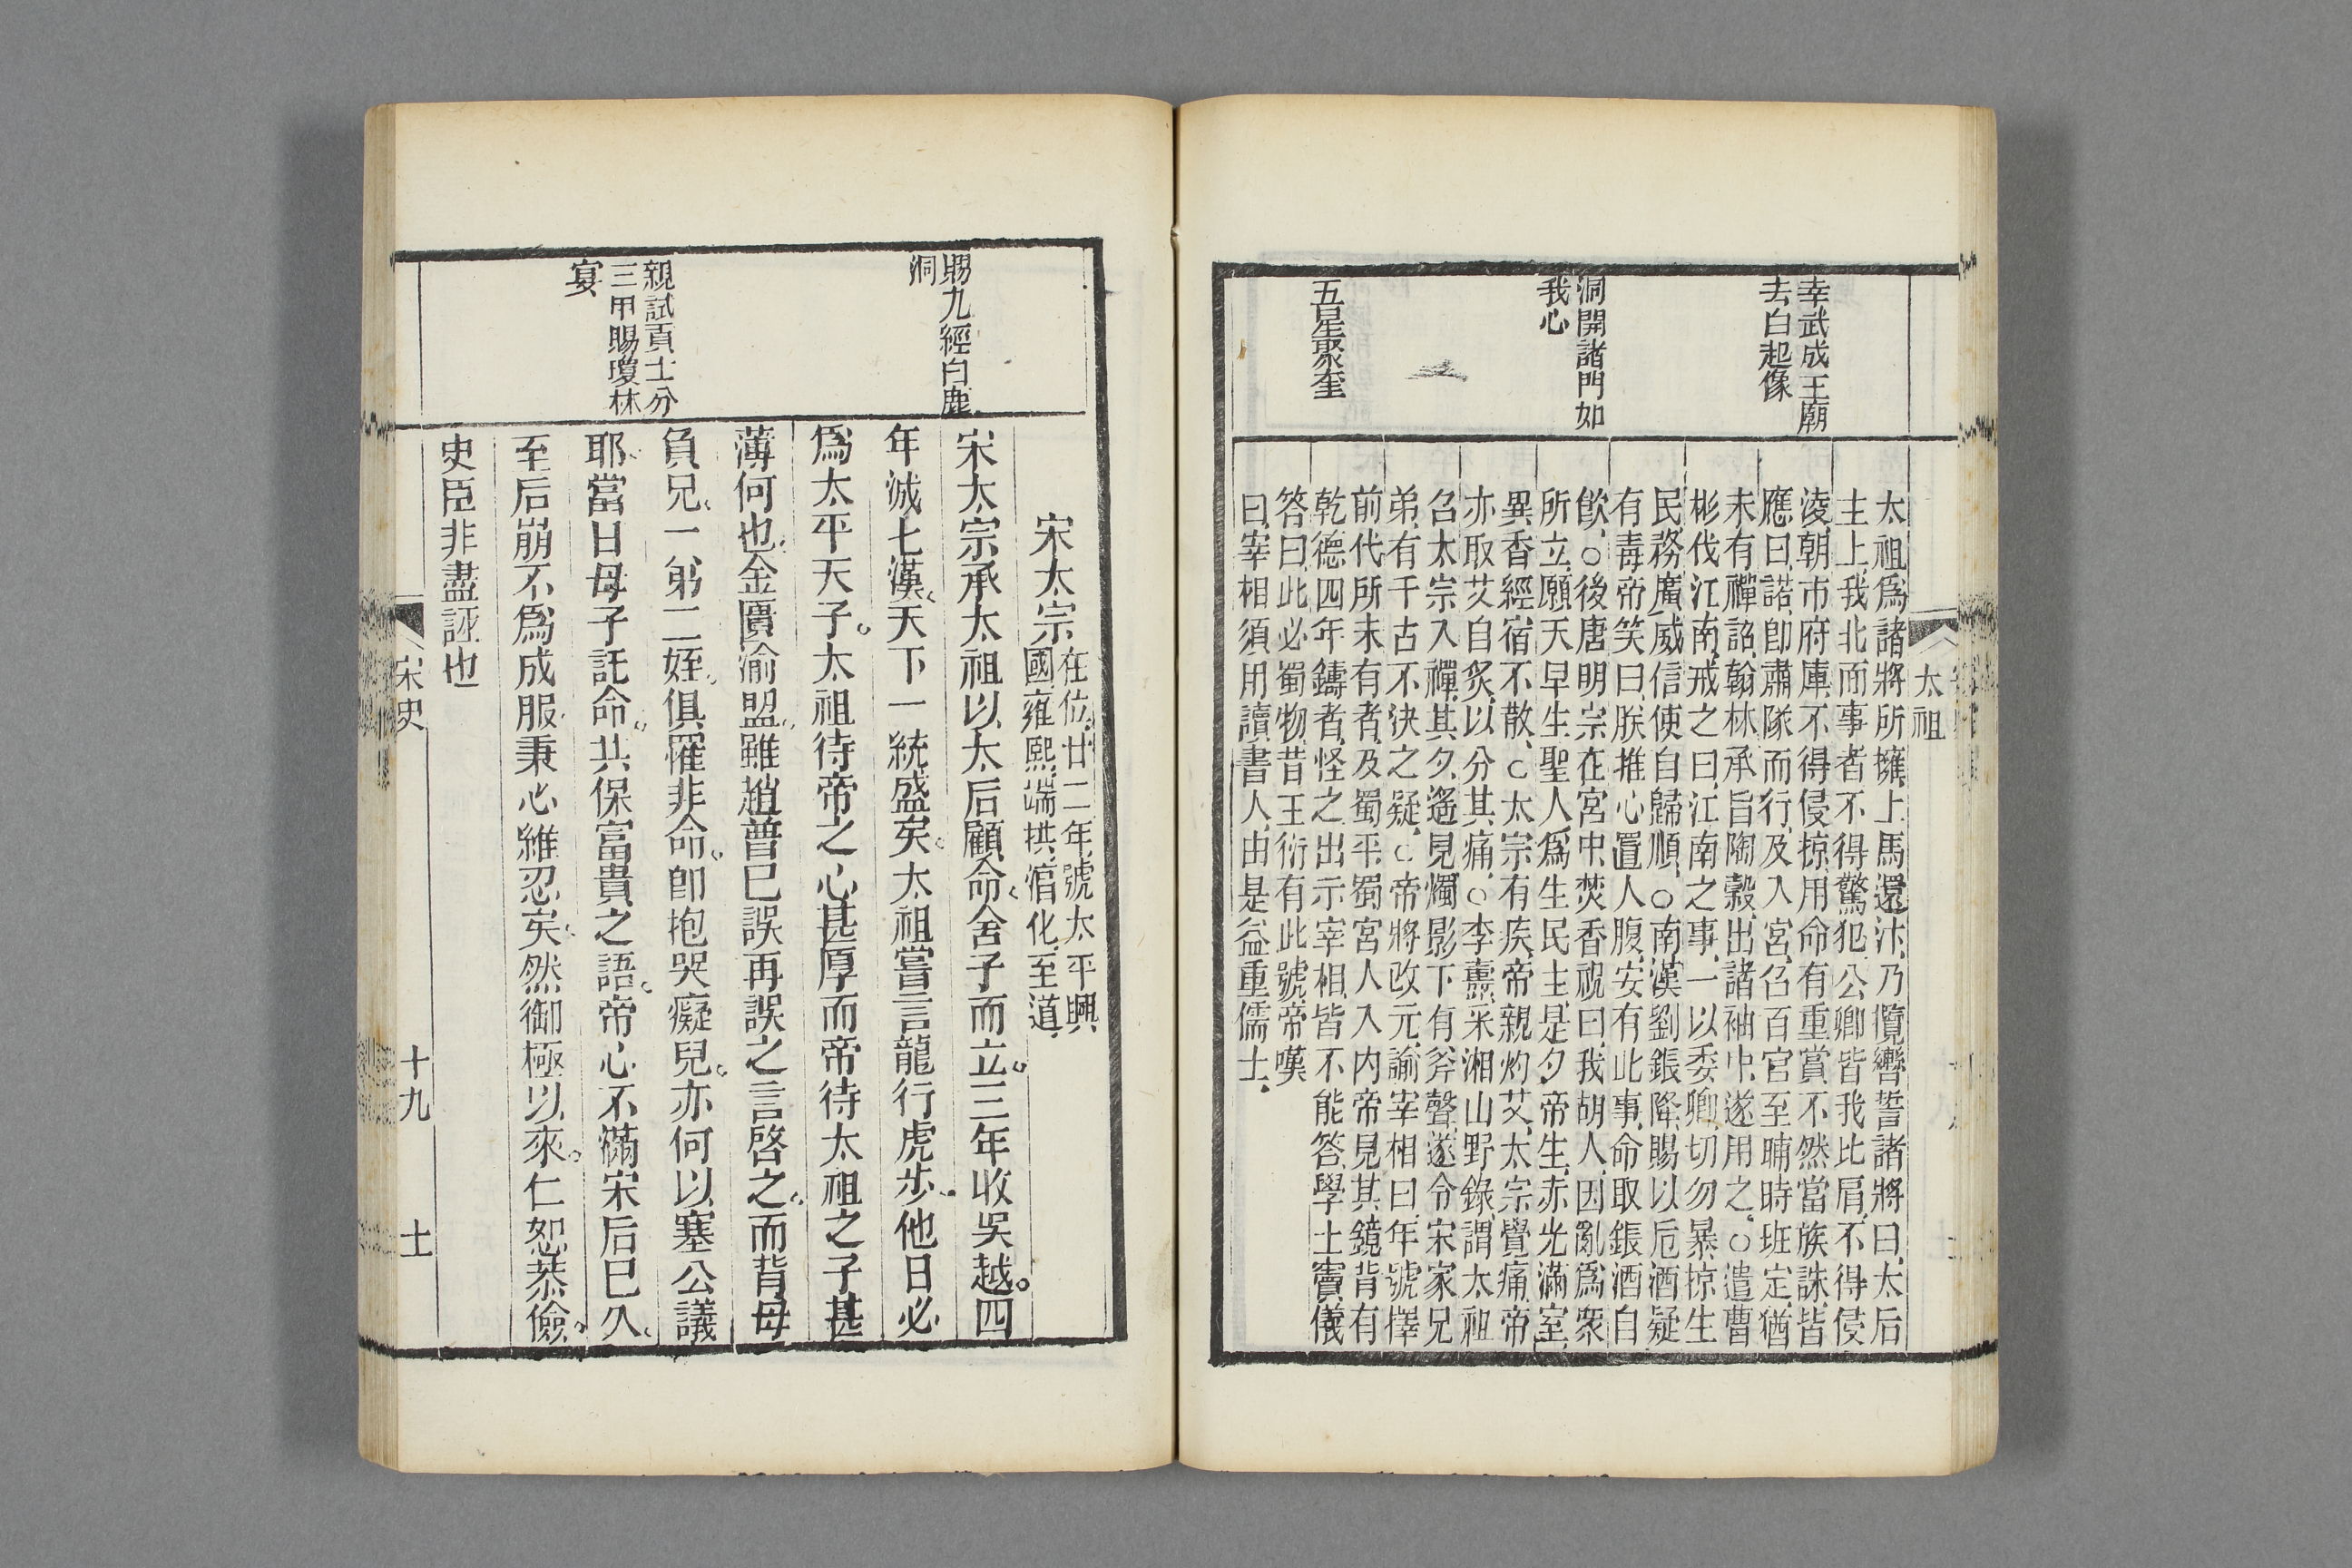 太祖
幸武成王廟
去白起像
洞開諸門如
我心
五星聚奎
太祖爲諸將所擁上馬還汴乃攬轡誓諸將曰太后
主上我北面事者不得驚犯公卿皆我比肩不得侵
淩朝市府庫不得侵掠用命有重賞不然當族誅皆
應曰諾卽肅隊而行及入宮召百官至晡時班定猶
未有禪詔翰林承旨陶穀出諸袖中遂用之○遣曹
彬伐江南戒之曰江南之事一以委卿切勿暴掠生
民務廣威信使自歸順○南漢劉鋹降賜以卮酒疑
有毒帝笑曰朕推心置人腹安有此事命取鋹酒自
飮○後唐明宗在宮中焚香祝曰我胡人因亂爲衆
所立願天早生聖人爲生民主是夕帝生赤光滿室
異香經宿不散○太宗有疾帝親灼艾太宗覺痛帝
亦取艾自炙以分其痛○李燾采湘山野錄謂太祖
召太宗入禪其夕遙見燭影下有斧聲遂令宋家兄
弟有千古不決之疑○帝將改元諭宰相曰年號擇
前代所未有者及蜀平蜀宮人入內帝見其鏡背有
乾德四年鑄者怪之出示宰相皆不能答學士竇儀
答曰此必蜀物昔王衍有此號帝嘆
曰宰相須用讀書人由是益重儒士
賜九經白鹿
洞
親試貢士分
三甲賜瓊林
宴
宋太宗在位廿二年號太平興
國雍熙端拱淳化至道
宋太宗承太祖以太后顧命舍子而立三年收吳越四
年滅七漢天下一統盛矣太祖嘗言龍行虎步他日必
爲太平天子太祖待帝之心甚厚而帝待太祖之子甚
薄何也金匱渝盟雖趙普已誤再誤之言啓之而背母
負兄一弟二姪俱罹非命卽抱哭癡兒亦何以塞公議
耶當日母子託命共保富貴之語帝心不滿宋后巳久
至后崩不爲成服秉心維忍矣然御極以來仁恕恭儉
史臣非盡誣也
宋史
十九
士